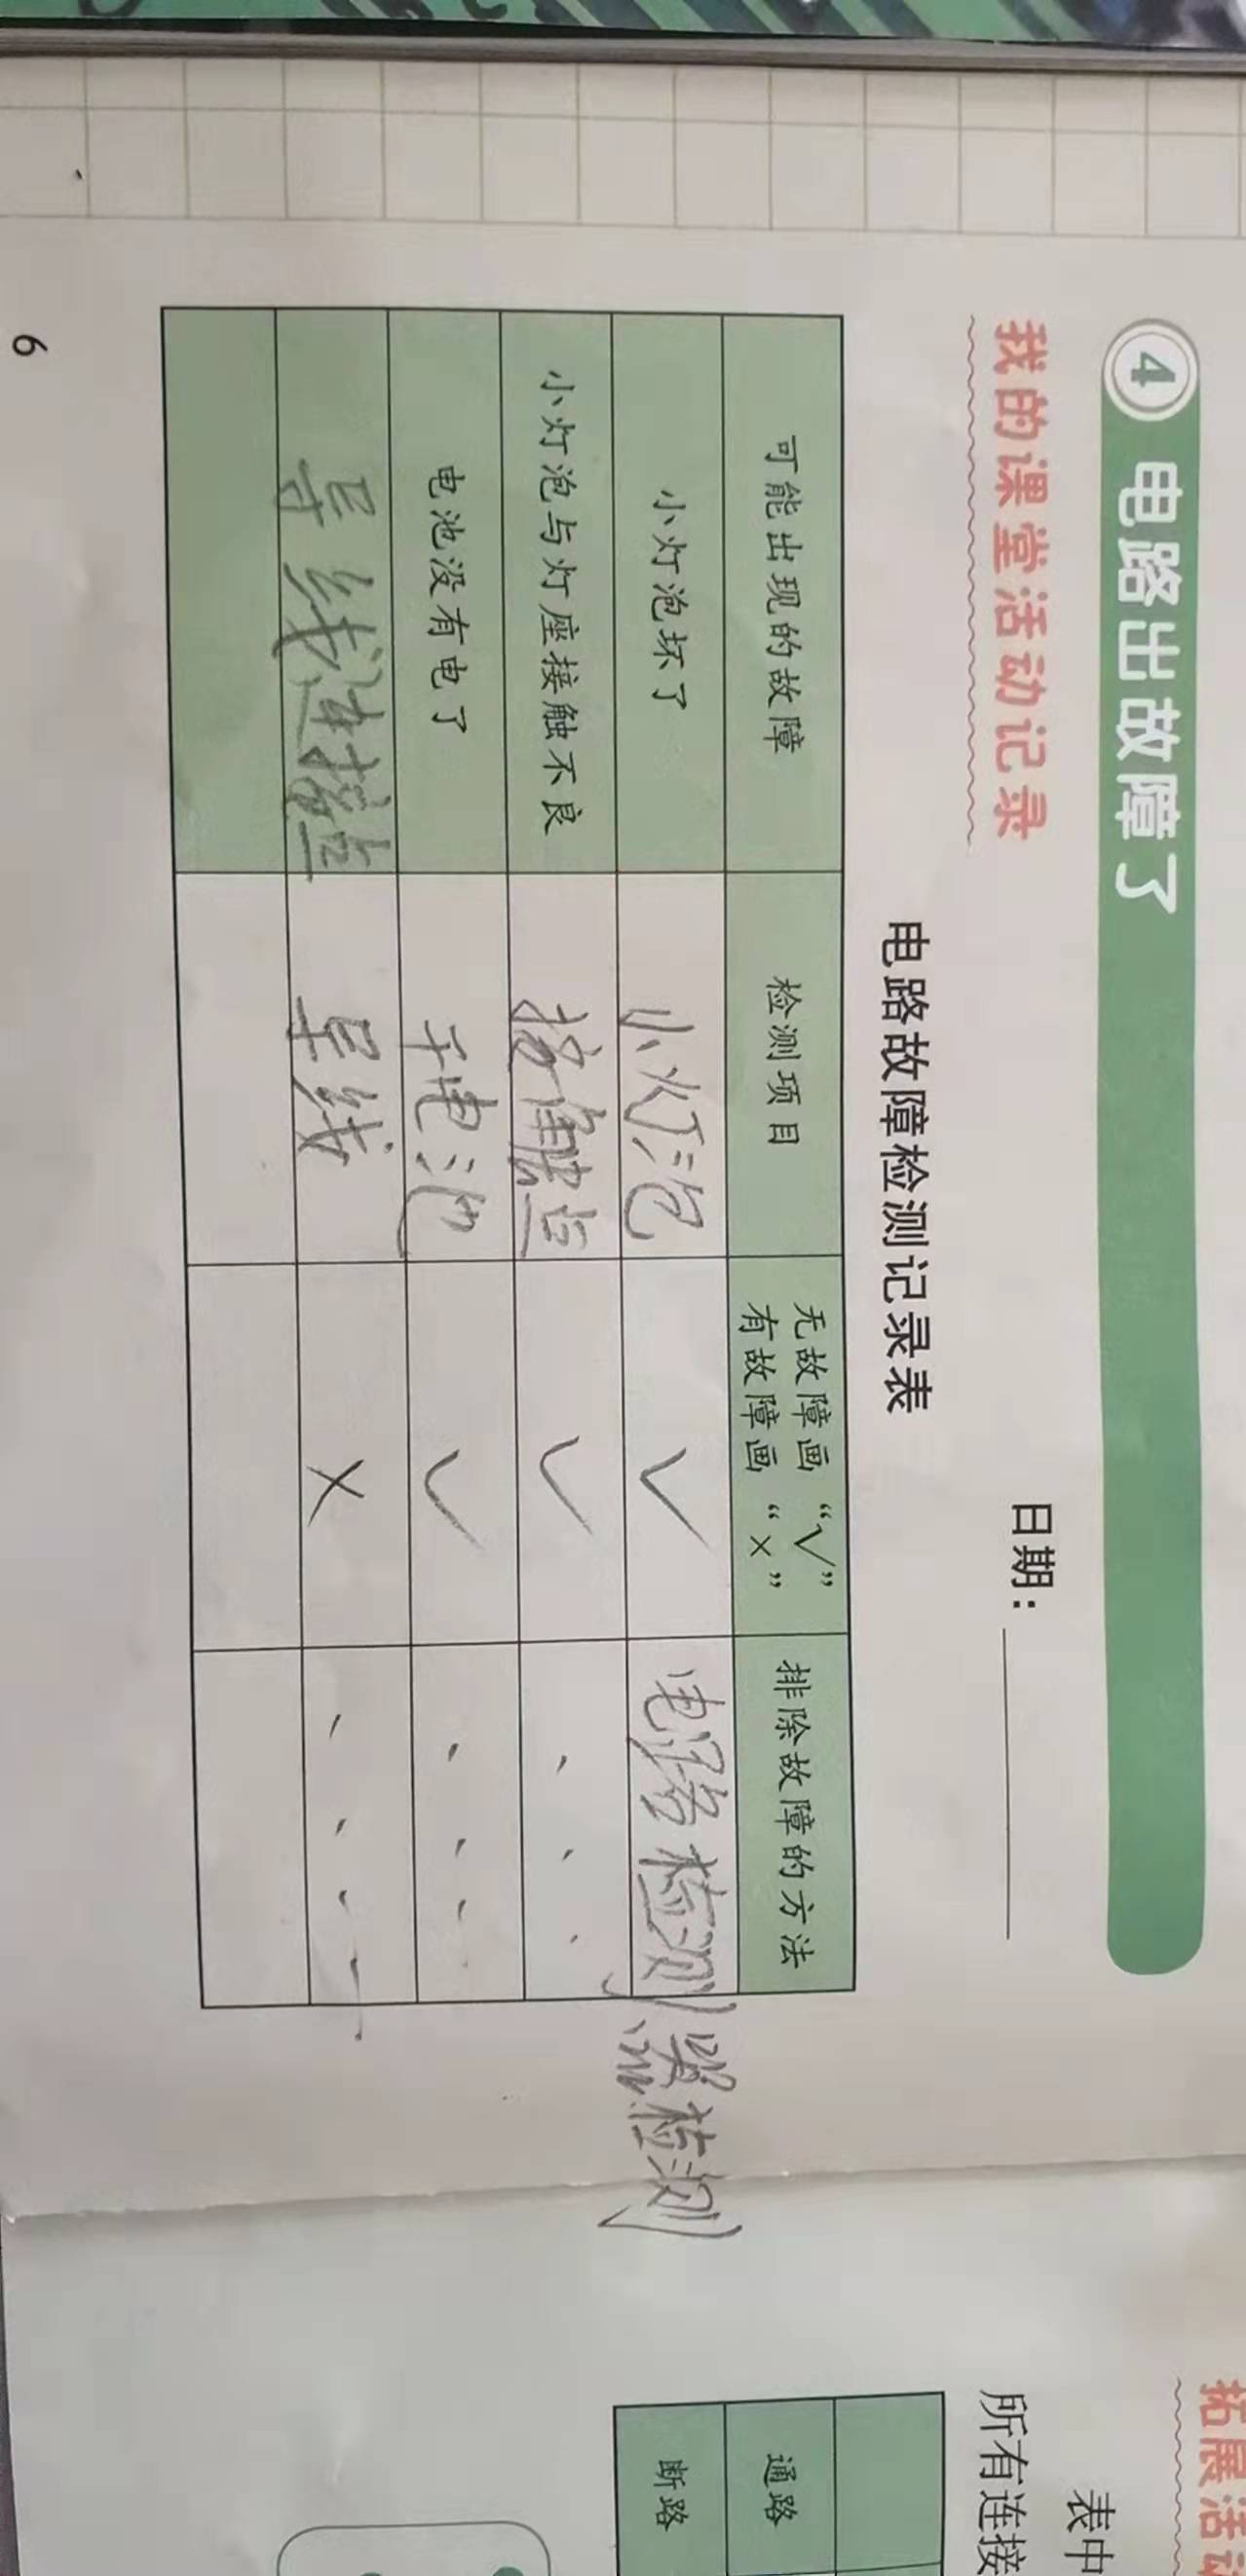 4 电路出故障了
我的课堂活动记录
日期：
电路故障检测记录表
可能出现的故障 检测项目 无故障画“√” 有故障画“×” 排除故障的方法
小灯泡坏了 小灯泡 √ 电路检测器检测
小灯泡与灯座接触不良 接触点 √
电池没有电了 干电池 √
导线连接点 导线 ×
6
拓展活动
表中
所有连接
通路
断路